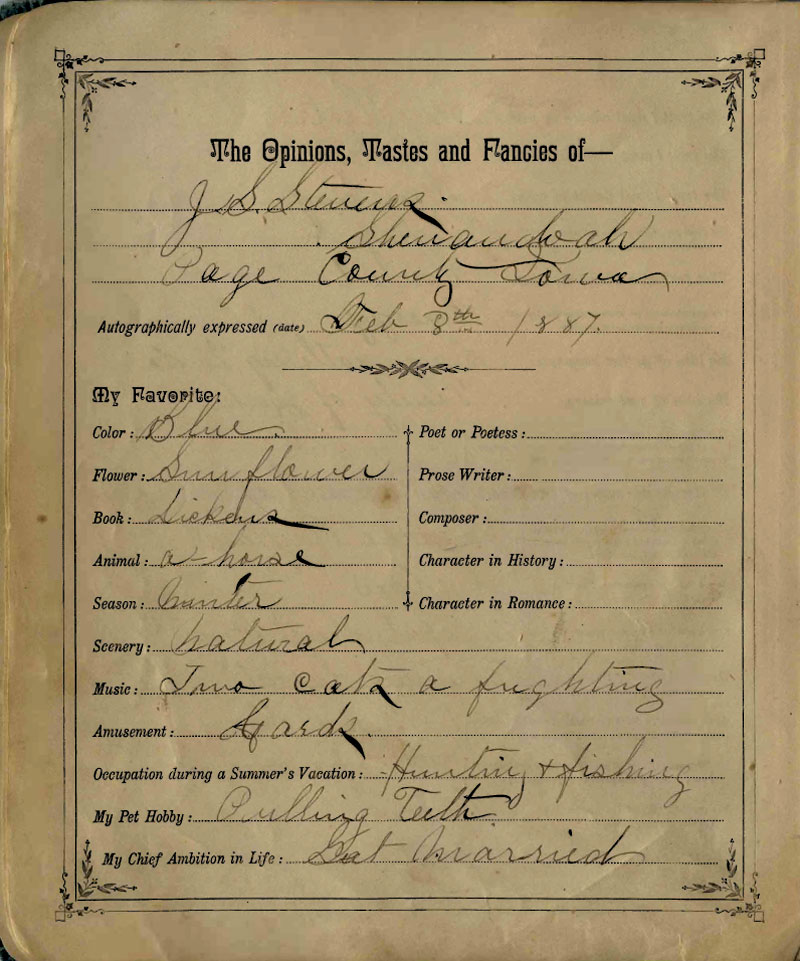 The Opinions, Tastes and Fancies of—
J. G. Stevens.
Shenandoah
Page County Iowa
Autographically expressed (date) Feb 8th 1887.
My Favorite:
Color: Blue
Flower: Sunflower
Book: Dickens
Animal: a horse
Season: Winter
Poet or Poetess:
Prose Writer:
Composer:
Character in History:
Character in Romance:
Scenery: Natural
Music: Two Cats a fighting
Amusement: Cards.
Occupation during a Summer's Vacation: Hunting & fishing
My Pet Hobby: Pulling Teeth
My Chief Ambition in Life: Get Married